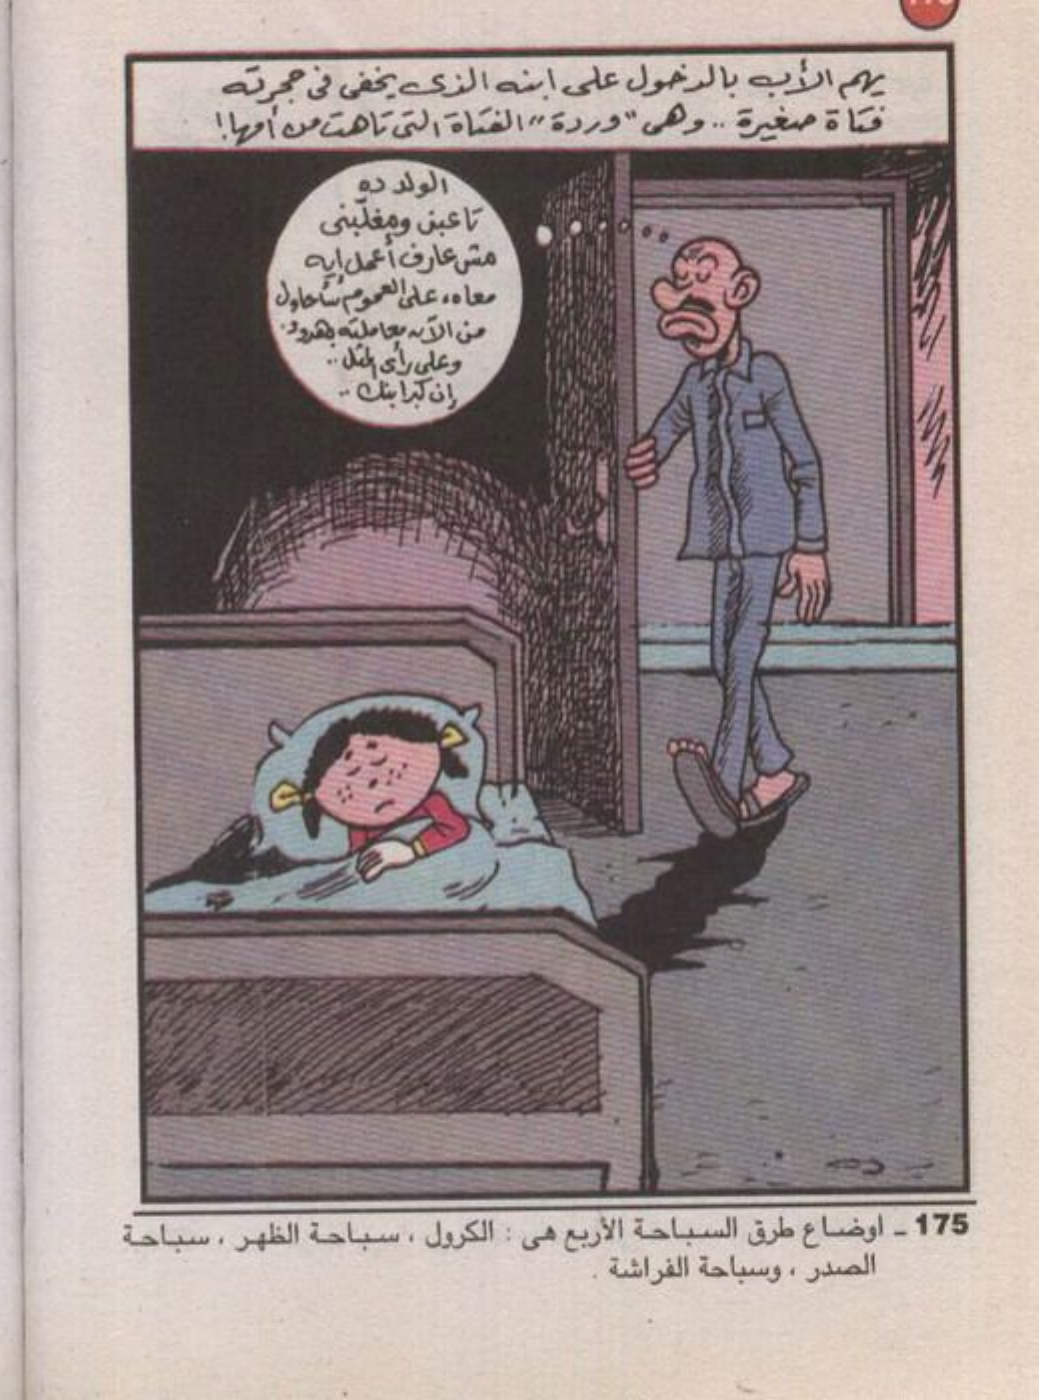 يهم الأب بالدخول على ابنه الذى يخفى فى حجرته
فتاة صغيرة .. وهى "وردة" الفتاة التى تاهت من أمها!
الولد ده
تاعبنى ومغلّبنى
مش عارف أعمل إيه
معاه، على العموم سأحاول
من الآن معاملته بهدوء.
وعلى رأى المثل ..
إن كبر ابنك ..
175 ـ اوضاع طرق السباحة الأربع هى : الكرول ، سباحة الظهر ، سباحة
الصدر ، وسباحة الفراشة .